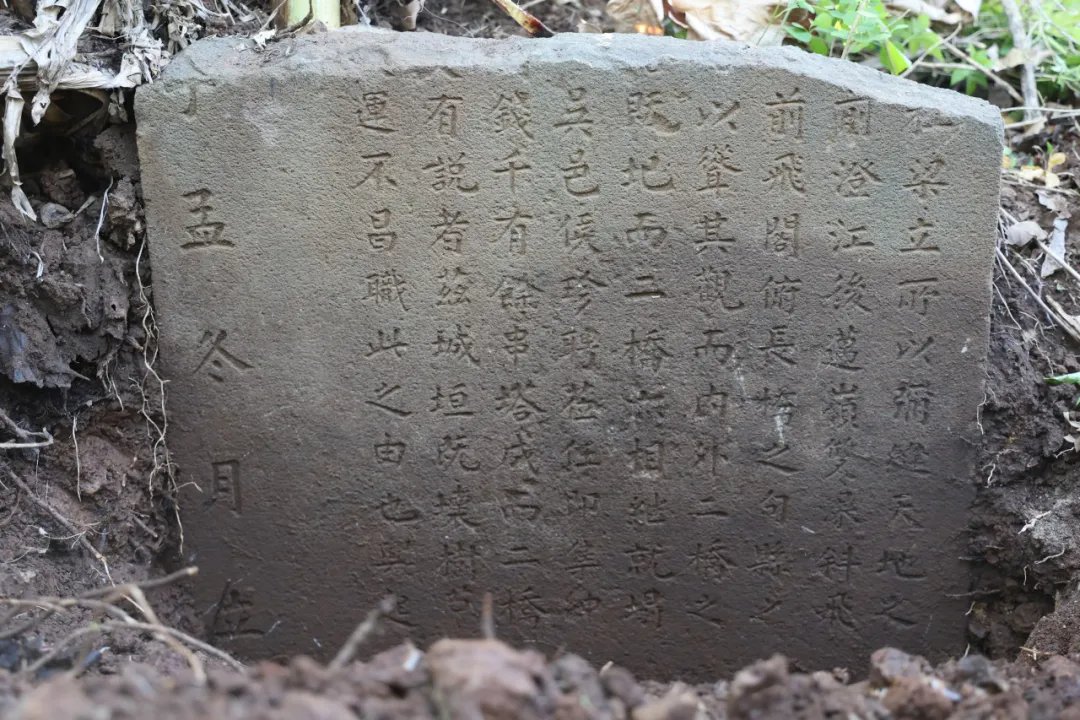 梁立所以彌縫天地之
澄江後嶺雙斜飛
前飛閣俯長橋之句縣之
以聳其觀而內外二橋之
既圮而二橋亦相繼就塌
吳邑侯珍聘蒞任即集紳
錢千有餘串塔成而二橋
有説者茲城垣既壞樹
運不昌職此之由也與
孟冬月